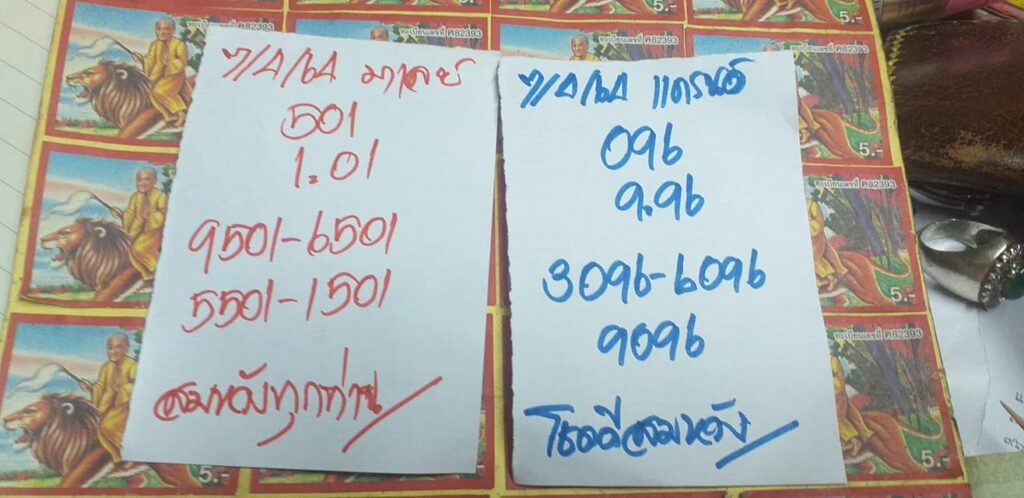 7/4/64 มาเลย์
501
1.01
9501-6501
5501-1501
สมหวังทุกท่าน
096
9.96
3096-6096
9096
โชคดีสมหวัง
ทะเบียนเลขที่ ค82393
5.-
ทะเบียนเลขที่ ค82393
5.-
ทะเบียนเลขที่ ค82393
5.-
ทะเบียนเลขที่ ค82393
5.-
ทะเบียนเลขที่ ค82393
5.-
5.-